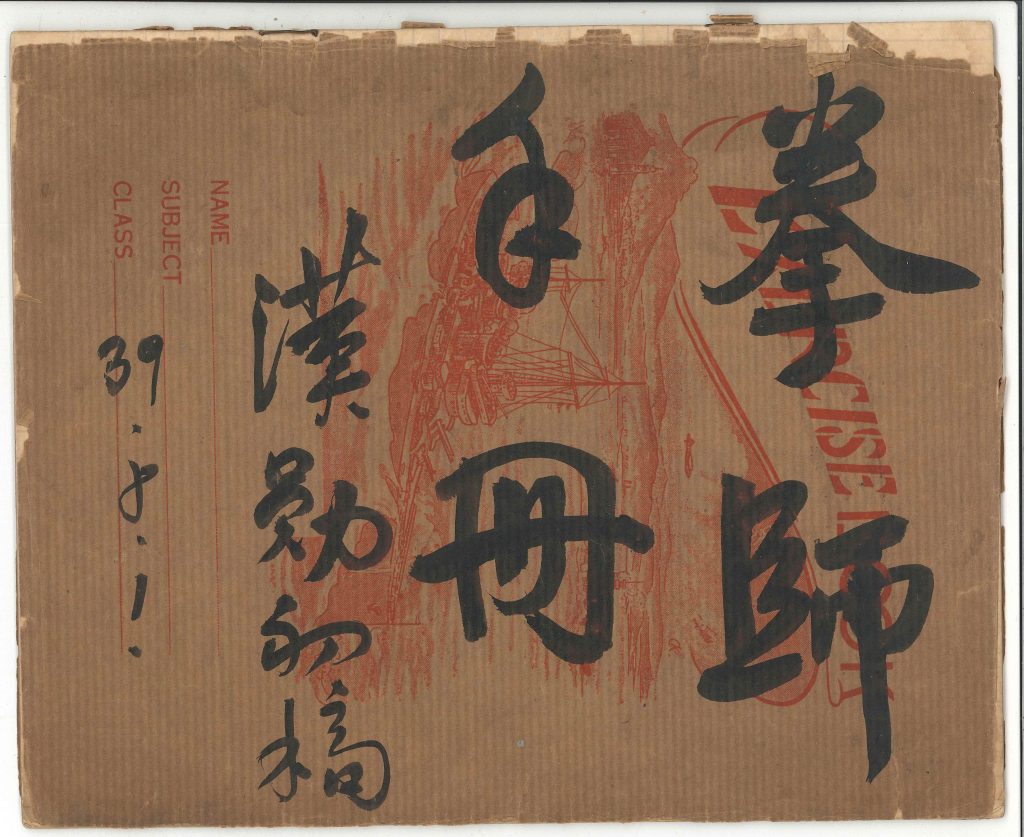 拳師
手冊
漢勛初稿
39.8.1.
EXERCISE BOOK
NAME
SUBJECT
CLASS